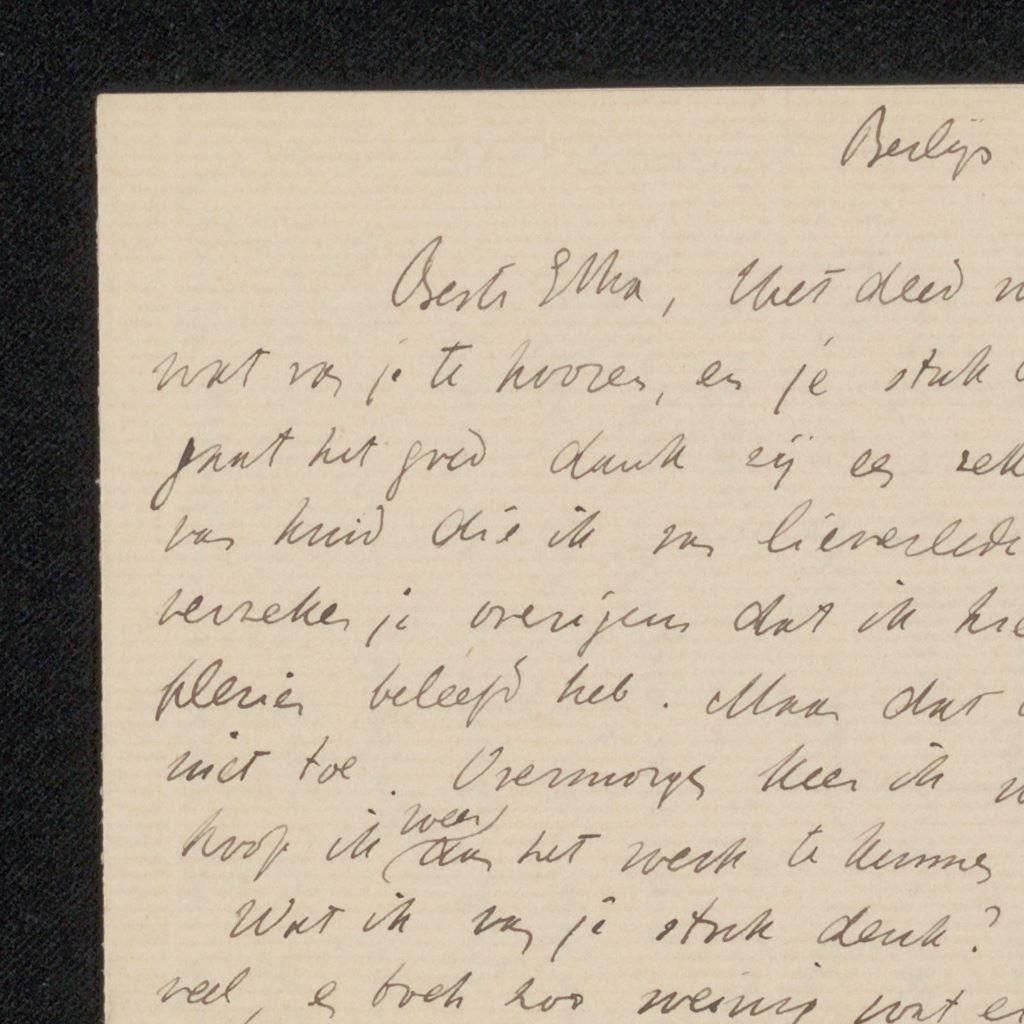 Berlijn
Beste Etha, Het deed
wat van je te hooren, en je stuk
gaat het goed dank zij een
van huid die ik van lieverlede
verzeker je overigens dat ik
plezier beleefd heb. Maar dat
niet toe. Overmorgen keer ik
hoop ik weer aan het werk te kunnen
Wat ik van je stuk denk?
veel, en toch zoo weinig wat